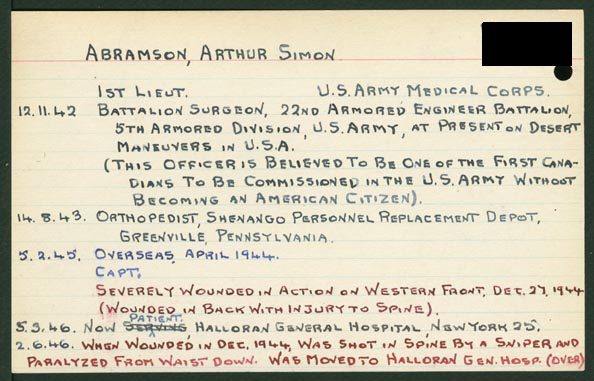 ABRAMSON, ARTHUR SIMON
1ST LIEUT. U.S. ARMY MEDICAL CORPS.
12.11.42 BATTALION SURGEON, 22ND ARMORED ENGINEER BATTALION,
5TH ARMORED DIVISION, U.S. ARMY, AT PRESENT ON DESERT
MANEUVERS IN U.S.A.
(THIS OFFICER IS BELIEVED TO BE ONE OF THE FIRST CANA-
DIANS TO BE COMMISSIONED IN THE U.S. ARMY WITHOUT
BECOMING AN AMERICAN CITIZEN).
14.8.43. ORTHOPEDIST, SHENANGO PERSONNEL REPLACEMENT DEPOT,
GREENVILLE, PENNSYLVANIA.
5.2.45. OVERSEAS, APRIL 1944.
CAPT.
SEVERELY WOUNDED IN ACTION ON WESTERN FRONT, DEC. 27, 1944
(WOUNDED IN BACK WITH INJURY TO SPINE).
PATIENT
5.3.46. NOW SERVING, HALLORAN GENERAL HOSPITAL, NEW YORK 25.
2.6.46. WHEN WOUNDED IN DEC. 1944, WAS SHOT IN SPINE BY A SNIPER AND
PARALYZED FROM WAIST DOWN. WAS MOVED TO HALLORAN GEN. HOSP. (OVER)